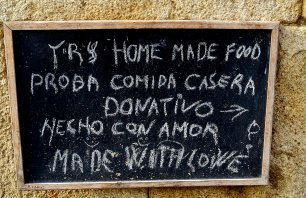 TRY HOME MADE FOOD
PROBA COMIDA CASERA
DONATIVO →
HECHO CON AMOR
MADE WITH LOWE